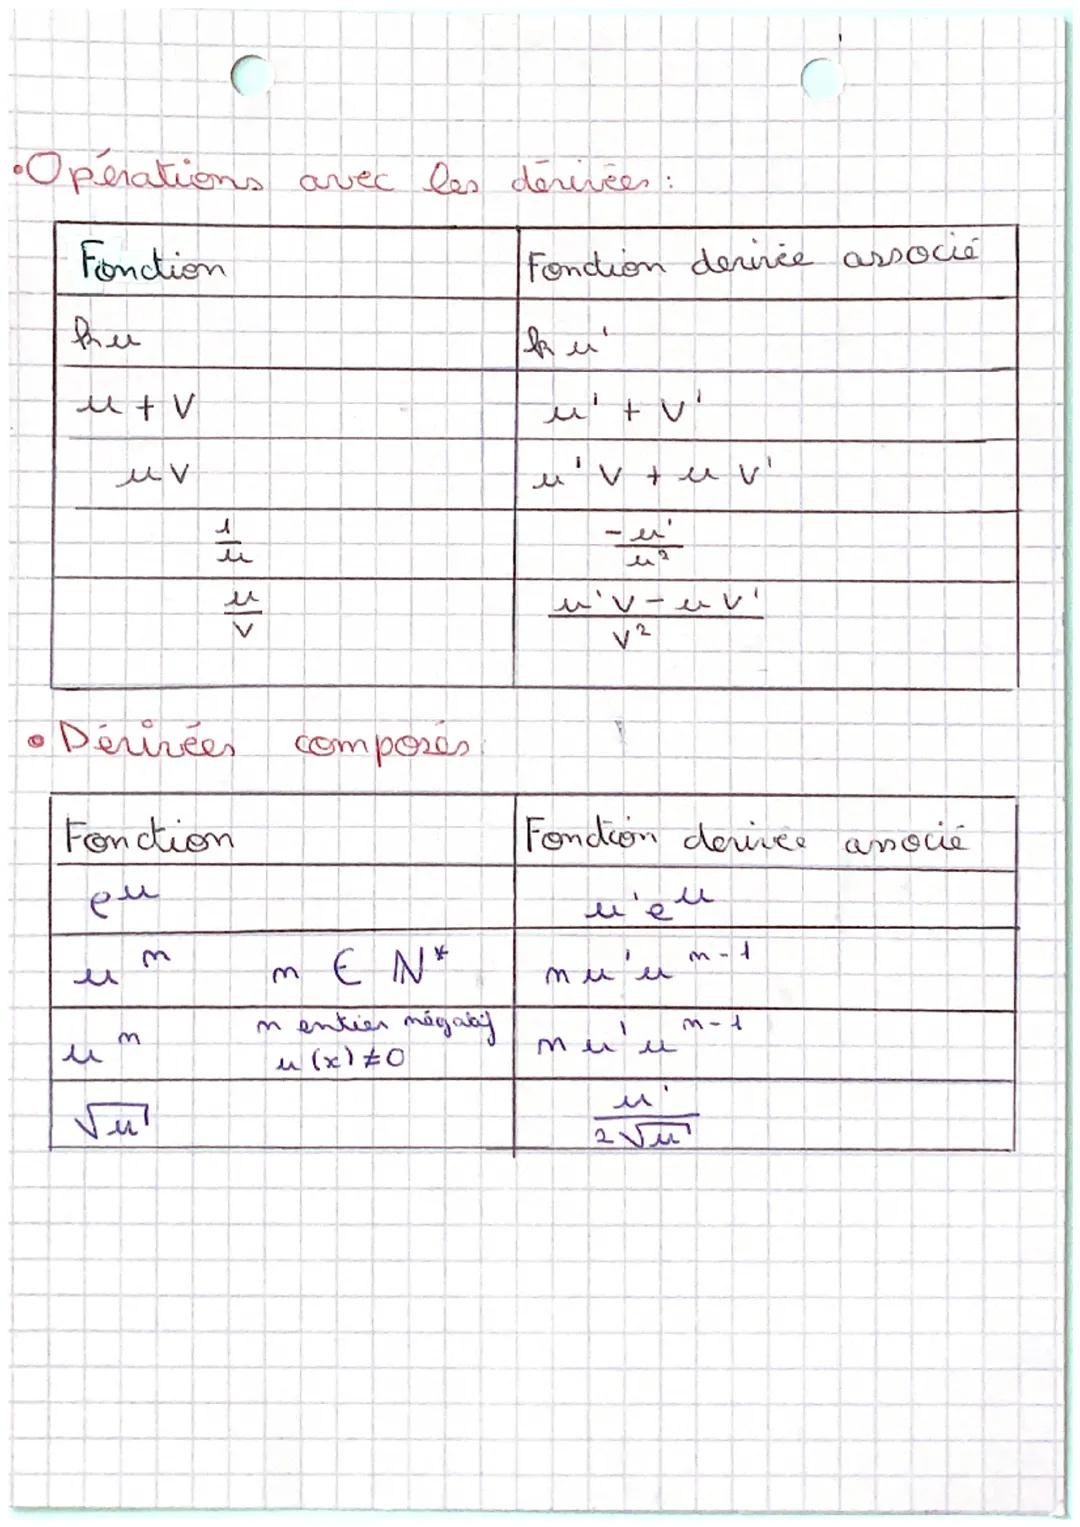 • Opérations avec les dérivées :
Fonction | Fonction derivée associé
ku | ku'
u + v | u' + v'
uv | u'v + uv'
1/u | -u'/u²
u/v | (u'v - uv')/v²
• Dérivées composés
Fonction | Fonction derivée associé
e^u | u'e^u
u^n n ∈ N* | nu'u^(n-1)
u^n n entier négatif u(x) ≠ 0 | nu'u^(n-1)
√u | u'/(2√u)